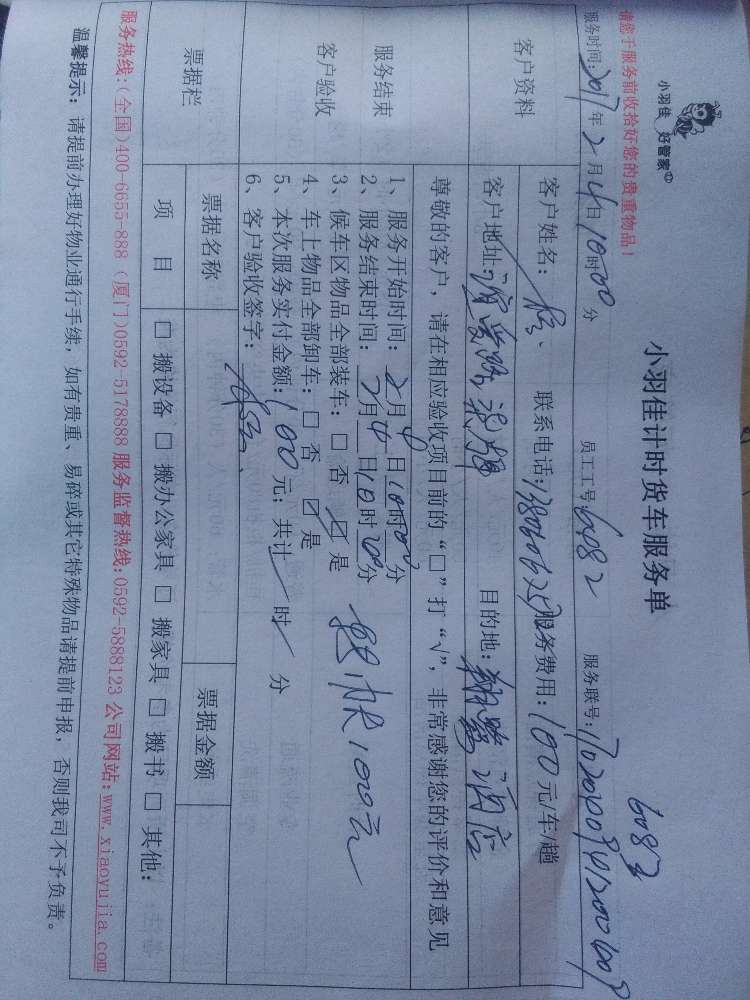 小羽佳 好管家
请您于服务前收拾好您的贵重物品！
小羽佳计时货车服务单
6082
服务时间：2017年2月4日10时00分 员工工号：6082 服务联号：
客户资料
客户姓名： 联系电话： 服务费用：100元/车/趟
客户地址： 目的地：翔鹭酒店
服务结束
客户验收
尊敬的客户，请在相应验收项目前的“□”打“√”，非常感谢您的评价和意见
1、服务开始时间：2月4日10时00分
2、服务结束时间：2月4日10时00分
3、候车区物品全部装车：□ 否 ☑ 是
4、车上物品全部卸车：□ 否 ☑ 是
5、本次服务实付金额：100元；共计 时 分
6、客户验收签字：
100元
票据栏
票据名称 票据金额
项 目 □ 搬设备 □ 搬办公家具 □ 搬家具 □ 搬书 □ 其他：
服务热线：(全国)400-6655-888 (厦门)0592-5178888 服务监督热线：0592-5888123 公司网站：www.xiaoyujia.com
温馨提示：请提前办理好物业通行手续，如有贵重、易碎或其它特殊物品请提前申报，否则我司不予负责。